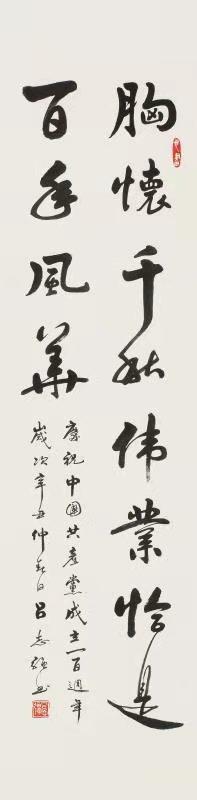 胸懷千秋伟業恰是
百年風華
慶祝中國共產黨成立一百週年
歲次辛丑仲春日呂志強书